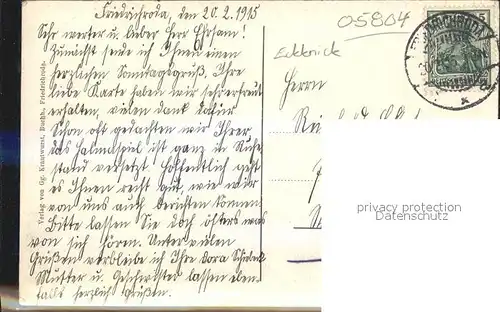 Friedrichroda, den 20.2.1915
Sehr werter u. lieber Herr Ehsam!
Zunächst sende ich Ihnen einen
herzlichen Sonntagsgruß. Ihre
liebe Karte haben wir sehr erfreut
erhalten, vielen dank dafür
Schon oft gedachten wir Ihrer
das Halmaspiel ist ganz in Ruhe
stand versetzt. Hoffentlich geht
es Ihnen recht gut, wie wir
von uns auch berichten können
Bitte lassen Sie doch öfters was
von sich hören. Unter vielen
Grüßen verbleibe ich Ihre Dora
Mutter u. Geschwister lassen eben-
falls herzlich grüßen.
Verlag von Gg. Knauwurst, Buchh., Friedrichroda.
05804
Eckknick
Herrn
5
FRIEDRICHRODA
privacy protection
Datenschutz